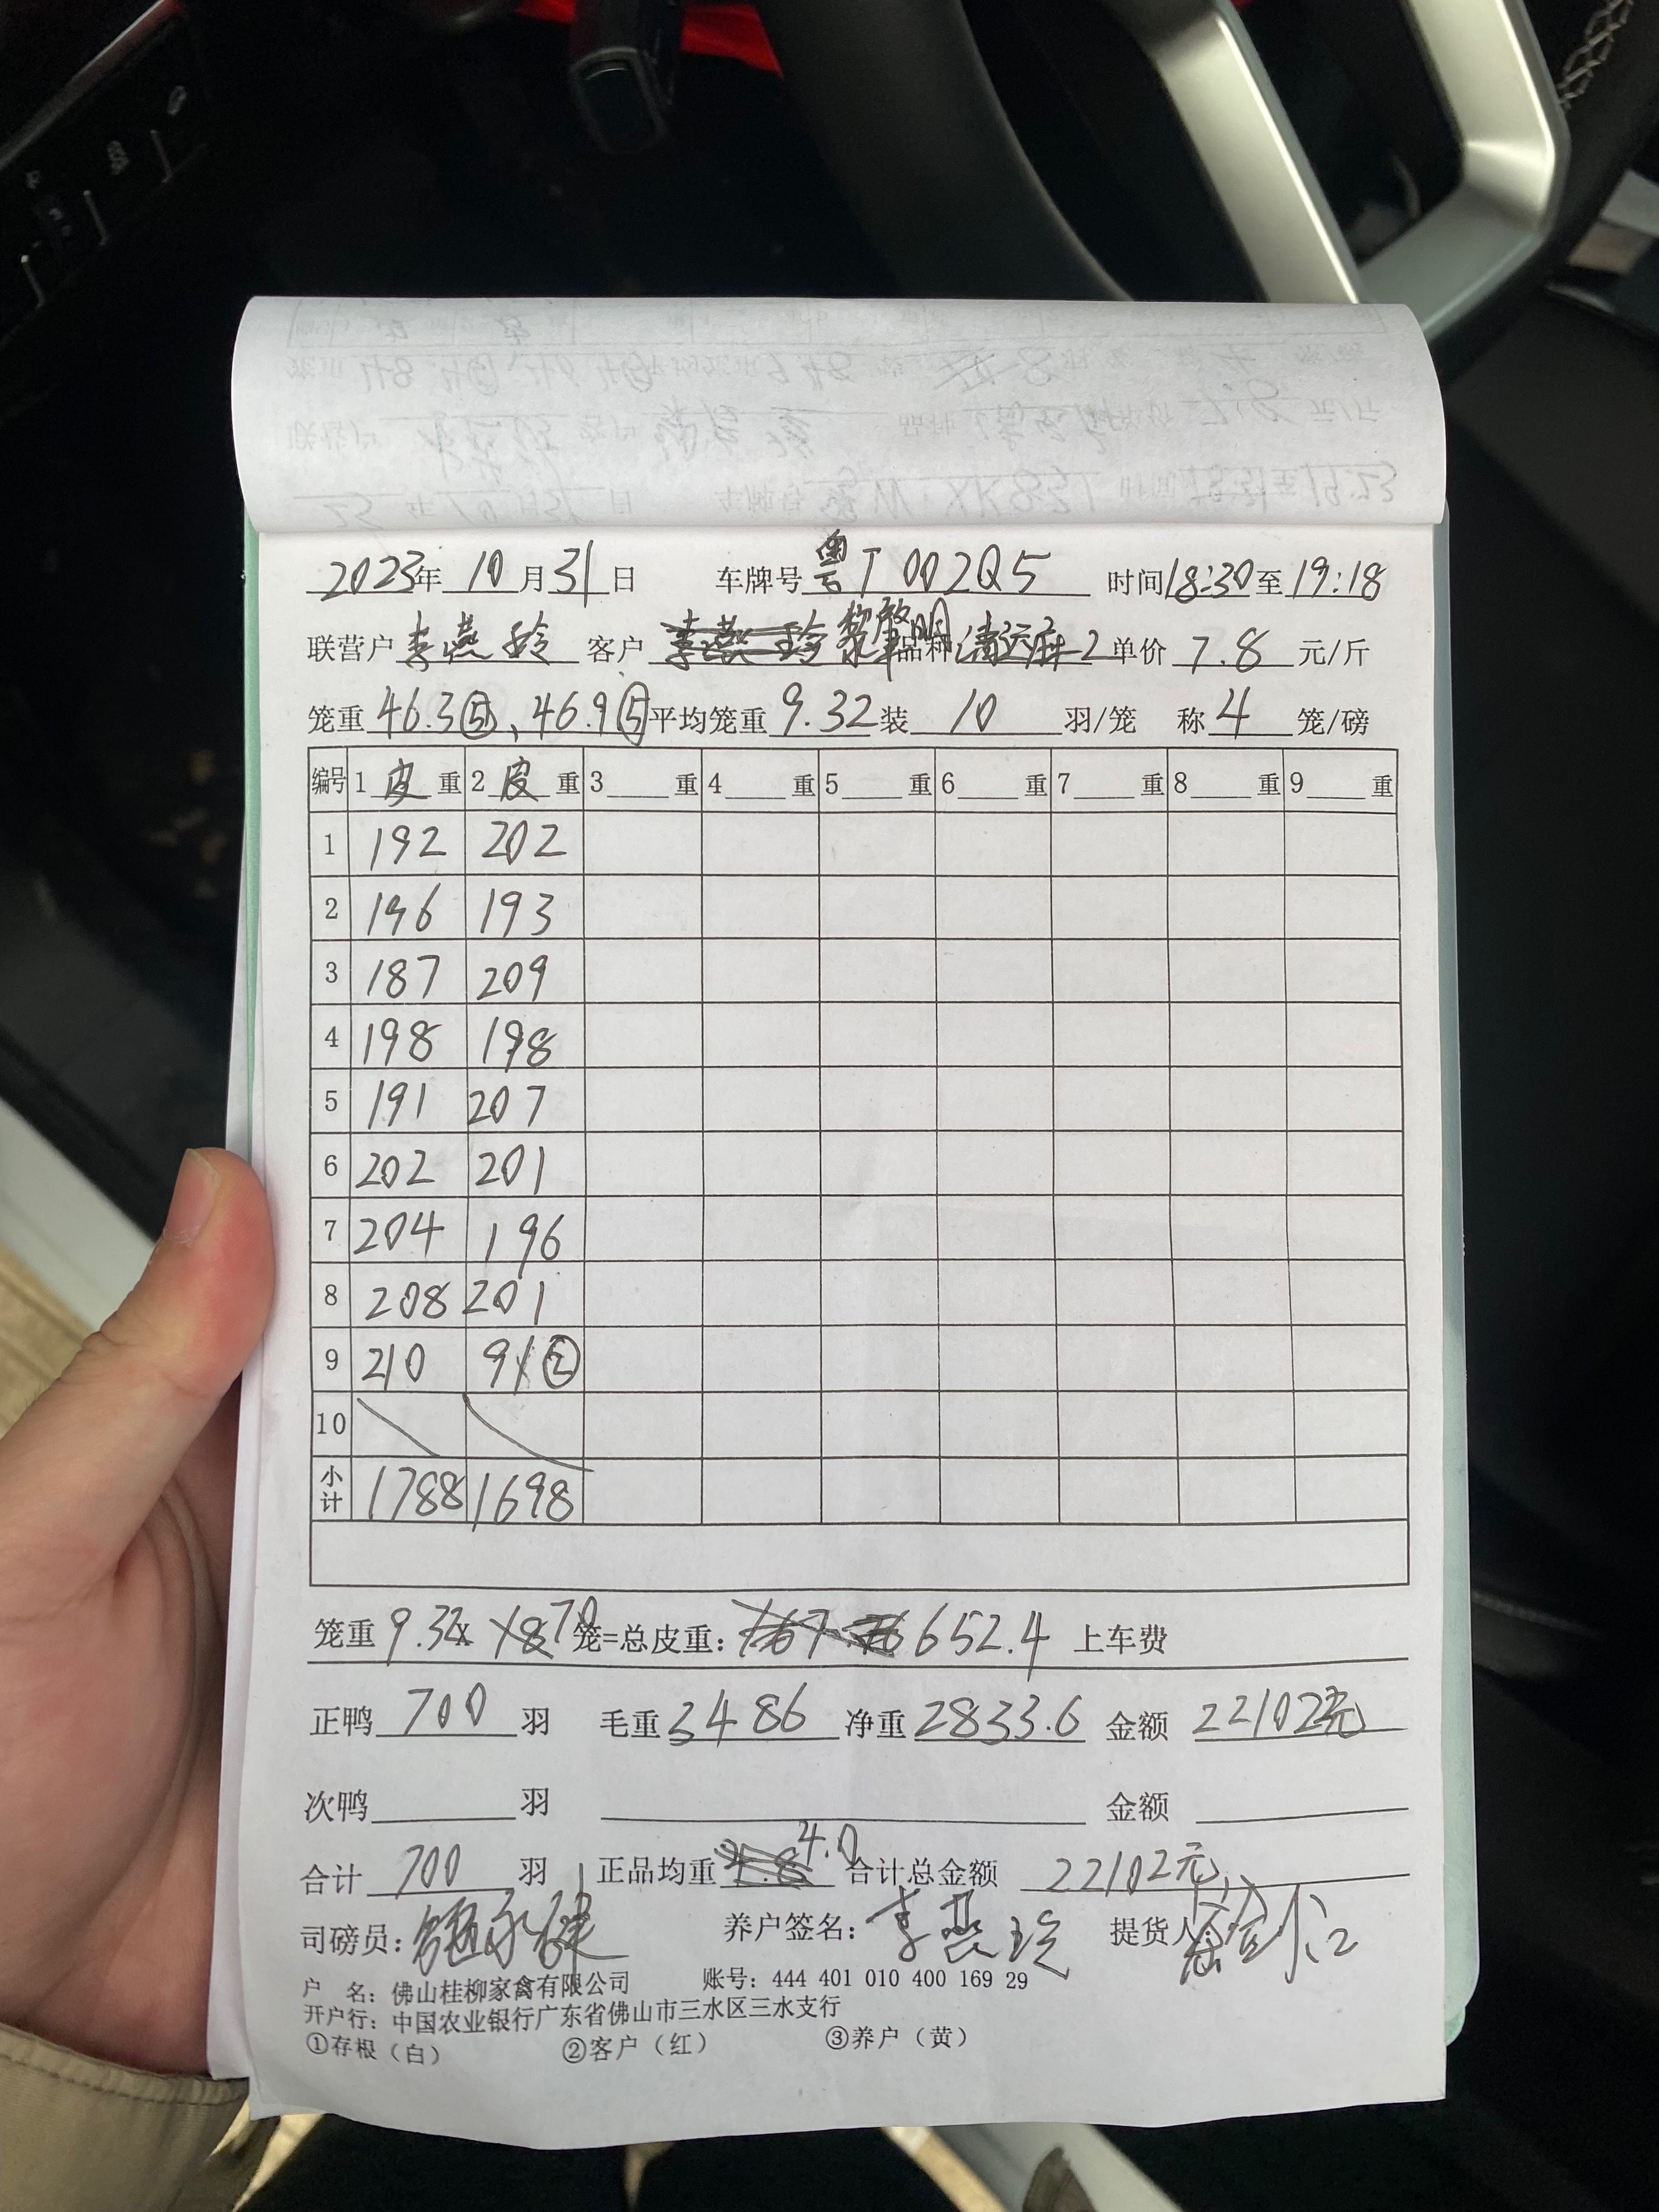 2023年 10 月 31 日 车牌号 粤T 002Q5 时间 18:30 至 19:18
联营户 李燕玲 客户 黎肇明 品种 清远麻-2 单价 7.8 元/斤
笼重 46.3⑤、46.9⑤ 平均笼重 9.32 装 10 羽/笼 称 4 笼/磅
编号 1 皮 重 2 皮 重 3 重 4 重 5 重 6 重 7 重 8 重 9 重
1 192 202
2 196 193
3 187 209
4 198 198
5 191 207
6 202 201
7 204 196
8 208 201
9 210 91②
10
小计 1788 1698
笼重 9.32 x 70 笼=总皮重: 652.4 上车费
正鸭 700 羽 毛重 3486 净重 2833.6 金额 22102元
次鸭 羽 金额
合计 700 羽 正品均重 4.0 合计总金额 22102元
司磅员: 养户签名: 李燕玲 提货人:
户 名: 佛山桂柳家禽有限公司 账号: 444 401 010 400 169 29
开户行: 中国农业银行广东省佛山市三水区三水支行
①存根（白） ②客户（红） ③养户（黄）